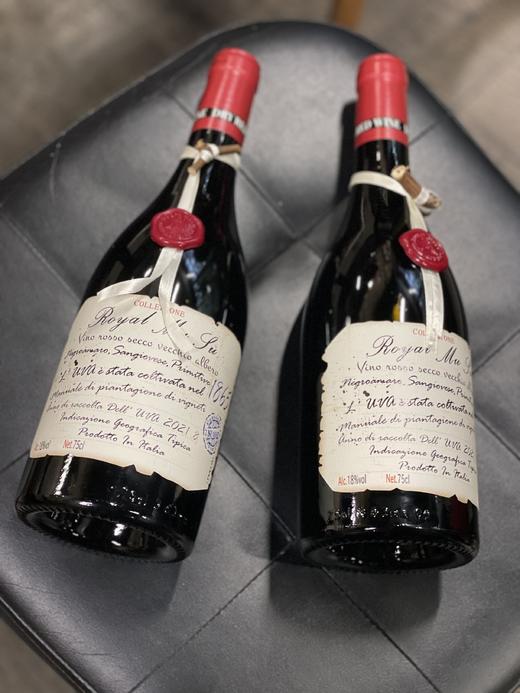 DRY
COLLEZIONE
Royal Mu Su
Vino rosso secco vecchio albero
Negroamaro, Sangiovese, Primitivo
L' UVA è stata coltivata nel 1865
Manuale di piantagione di vigneti
Anno di raccolta Dell' UVA 2021
Indicazione Geografica Tipica
Prodotto In Italia
Alc.18%vol Net.75cl
RED WINE
COLLEZIONE
Royal Mu
Vino rosso secco vecchio
Negroamaro, Sangiovese,
L' UVA è stata coltivata
Manuale di piantagione di
Anno di raccolta Dell' UVA
Indicazione Geografica
Prodotto In Italia
Alc.18%vol Net.75cl